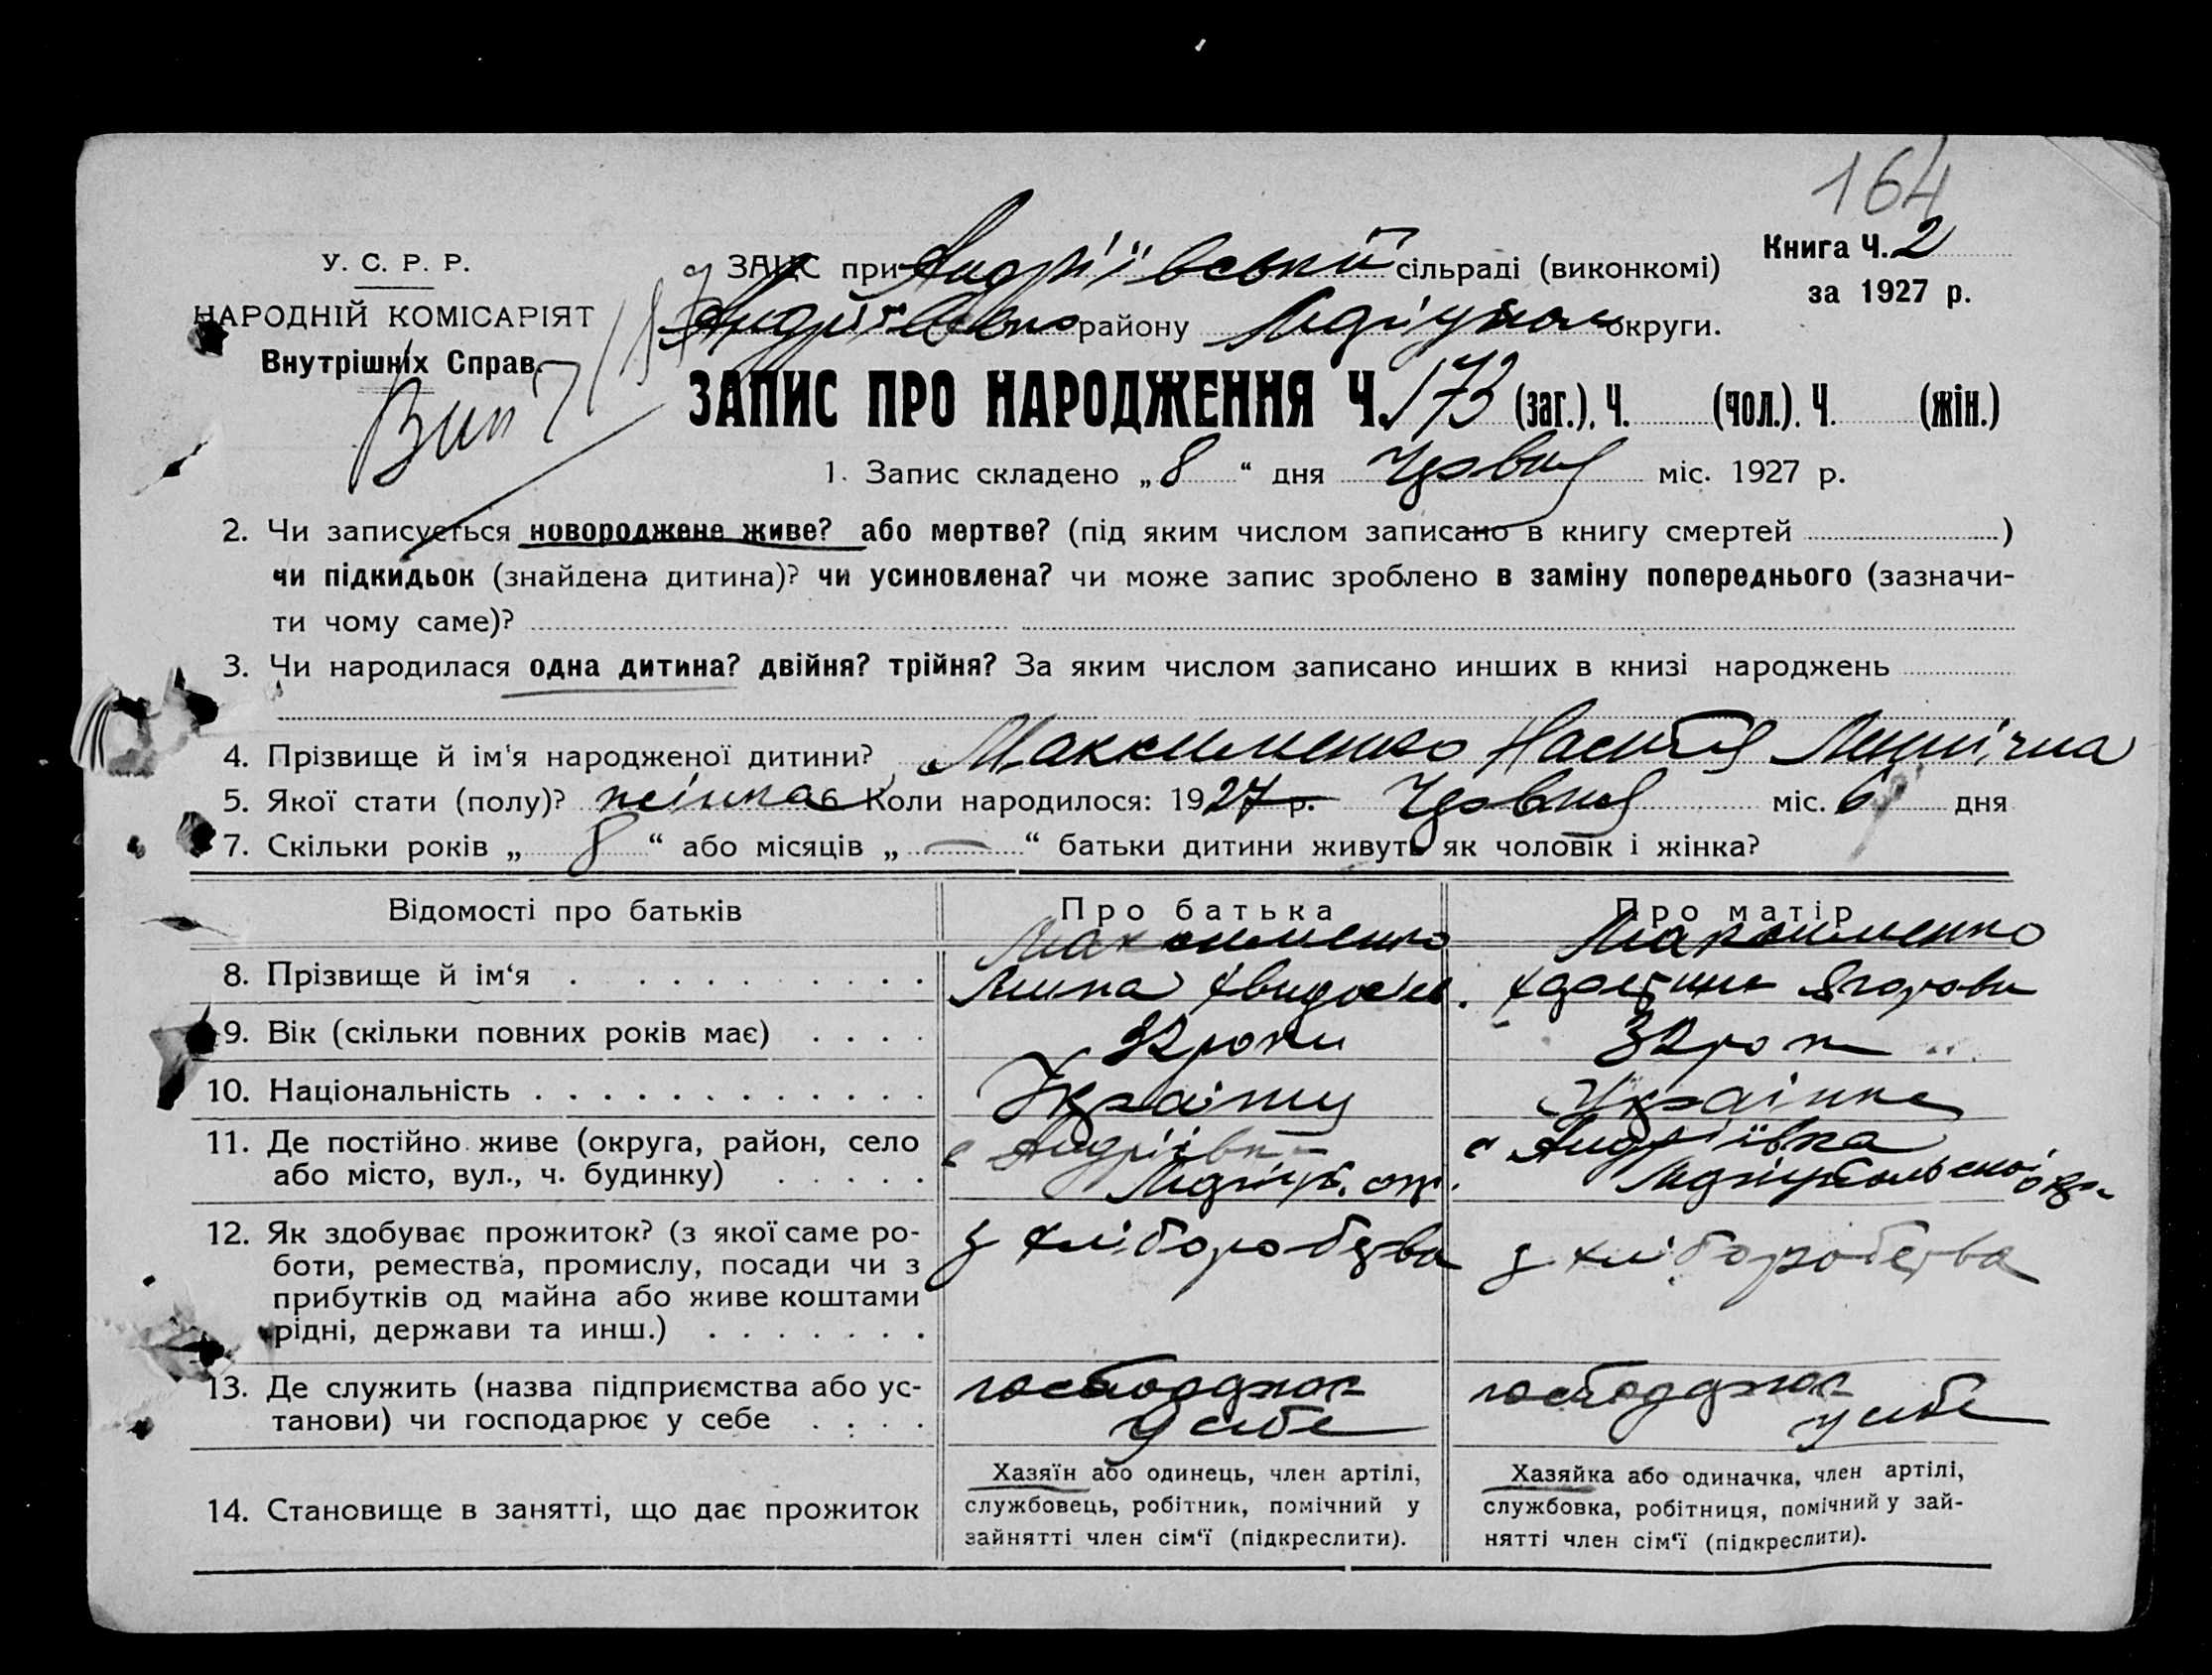 164
У. С. Р. Р.
НАРОДНІЙ КОМІСАРІЯТ
Внутрішніх Справ.
ЗАГС при Андріївській сільраді (виконкомі)
району округи.
Книга Ч. 2
за 1927 р.
ЗАПИС ПРО НАРОДЖЕННЯ Ч. 173 (заг.). Ч. (чол.). Ч. (жін.)
1. Запис складено „ 8 “ дня Червня міс. 1927 р.
2. Чи записується новороджене живе? або мертве? (під яким числом записано в книгу смертей )
чи підкидьок (знайдена дитина)? чи усиновлена? чи може запис зроблено в заміну попереднього (зазначи-
ти чому саме)?
3. Чи народилася одна дитина? двійня? трійня? За яким числом записано инших в книзі народжень
4. Прізвище й ім'я народженої дитини? Максименко Настя
5. Якої стати (полу)? жінка 6 Коли народилося: 1927 р. Червня міс. 6 дня
7. Скільки років „ 8 “ або місяців „ — “ батьки дитини живуть як чоловік і жінка?
Відомості про батьків
Про батька
Про матір
8. Прізвище й ім‘я
Максименко
Максименко
9. Вік (скільки повних років має)
32 роки
32 рок
10. Національність
Українка
11. Де постійно живе (округа, район, село
або місто, вул., ч. будинку)
с Андріївк
с Андріївка
12. Як здобуває прожиток? (з якої саме ро-
боти, ремества, промислу, посади чи з
прибутків од майна або живе коштами
рідні, держави та инш.)
з хліборобства
з хліборобства
13. Де служить (назва підприємства або ус-
танови) чи господарює у себе
у себе
у себе
14. Становище в занятті, що дає прожиток
Хазяїн або одинець, член артілі,
службовець, робітник, помічний у
зайнятті член сім‘ї (підкреслити).
Хазяйка або одиначка, член артілі,
службовка, робітниця, помічний у зай-
нятті член сім‘ї (підкреслити).